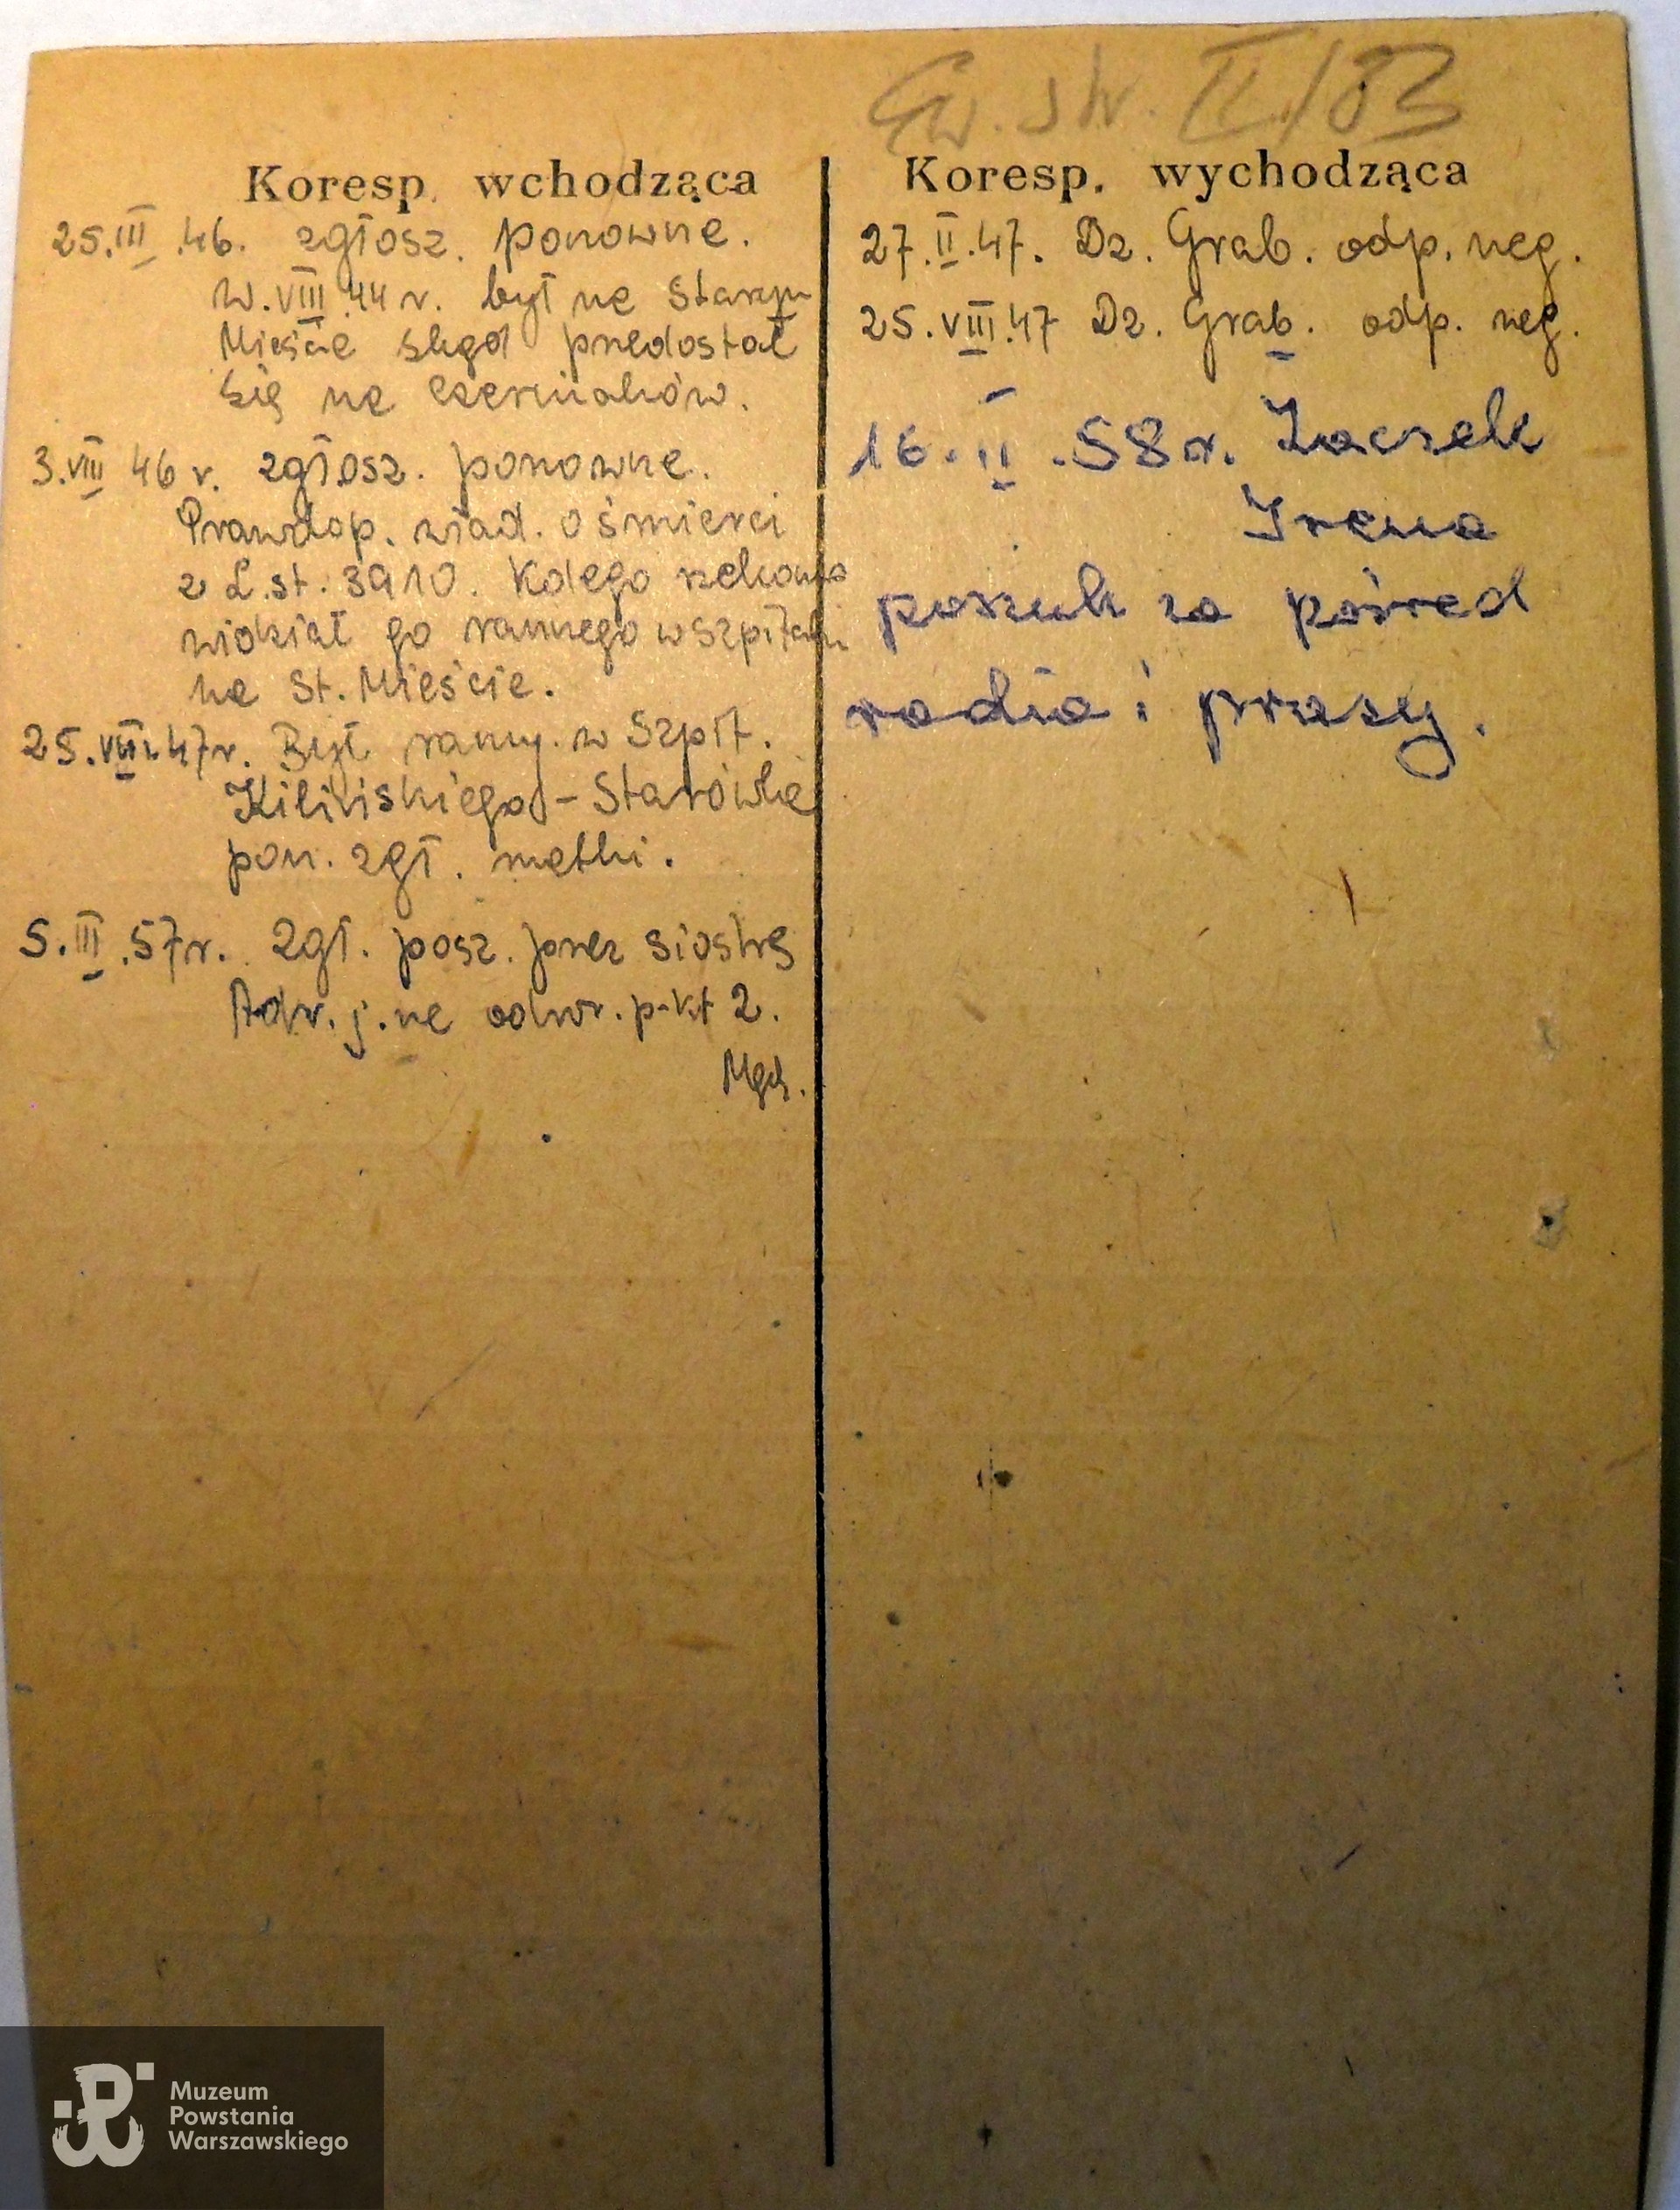 Ew. str. II/83
Koresp. wchodząca
25.III.46. zgłosz. ponowne.
w. VIII.44 r. był na Starym
Mieście skąd przedostał
się na Czerniaków.
3.VIII 46 r. zgłosz. ponowne.
Prawdop. wiad. o śmierci
z L.st. 3910. Kolega rzekomo
widział go rannego w szpitalu
na St. Mieście.
25.VIII.47r. Był ranny. w Szpit.
Kilińskiego - Starówka
pon. zgł. matki.
5.III.57r. zgł. posz. przez siostrę
Adr. j. na odwr. p-kt 2.
Koresp. wychodząca
27.II.47. Dz. Grab. odp. neg.
25.VIII.47 Dz. Grab. odp. neg.
16.II.58 r. Żaczek
Irena
poszuk za pośred
radia i prasy.
Muzeum
Powstania
Warszawskiego